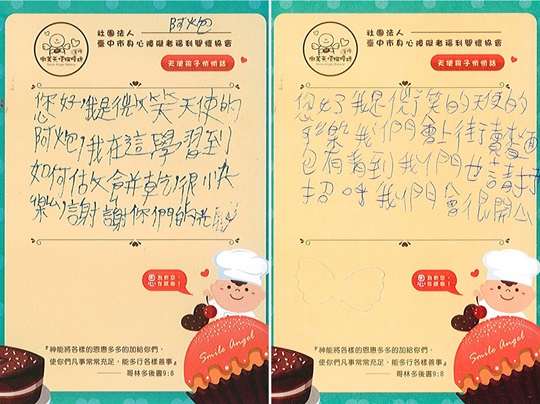 阿炮
社團法人
臺中市身心障礙者福利關懷協會
微笑天使咖啡坊
Smile Angel Bakery
天使孩子悄悄話
您好!我是微笑天使的
阿炮!我在這學習到
如何做餅乾!很快
樂!謝謝你們的光
恩
Smile Angel
『神能將各樣的恩惠多多的加給你們,
使你們凡事常常充足,能多行各樣善事』
哥林多後書9:8
社團法人
臺中市身心障礙者福利關懷協會
Smile Angel Bakery
天使孩子悄悄話
您好我是微笑的天使的
我們會上街賣
包有看到我們也請打
招呼我們會很開心
恩
Smile Angel
『神能將各樣的恩惠多多的加給你們,
使你們凡事常常充足,能多行各樣善事』
哥林多後書9:8